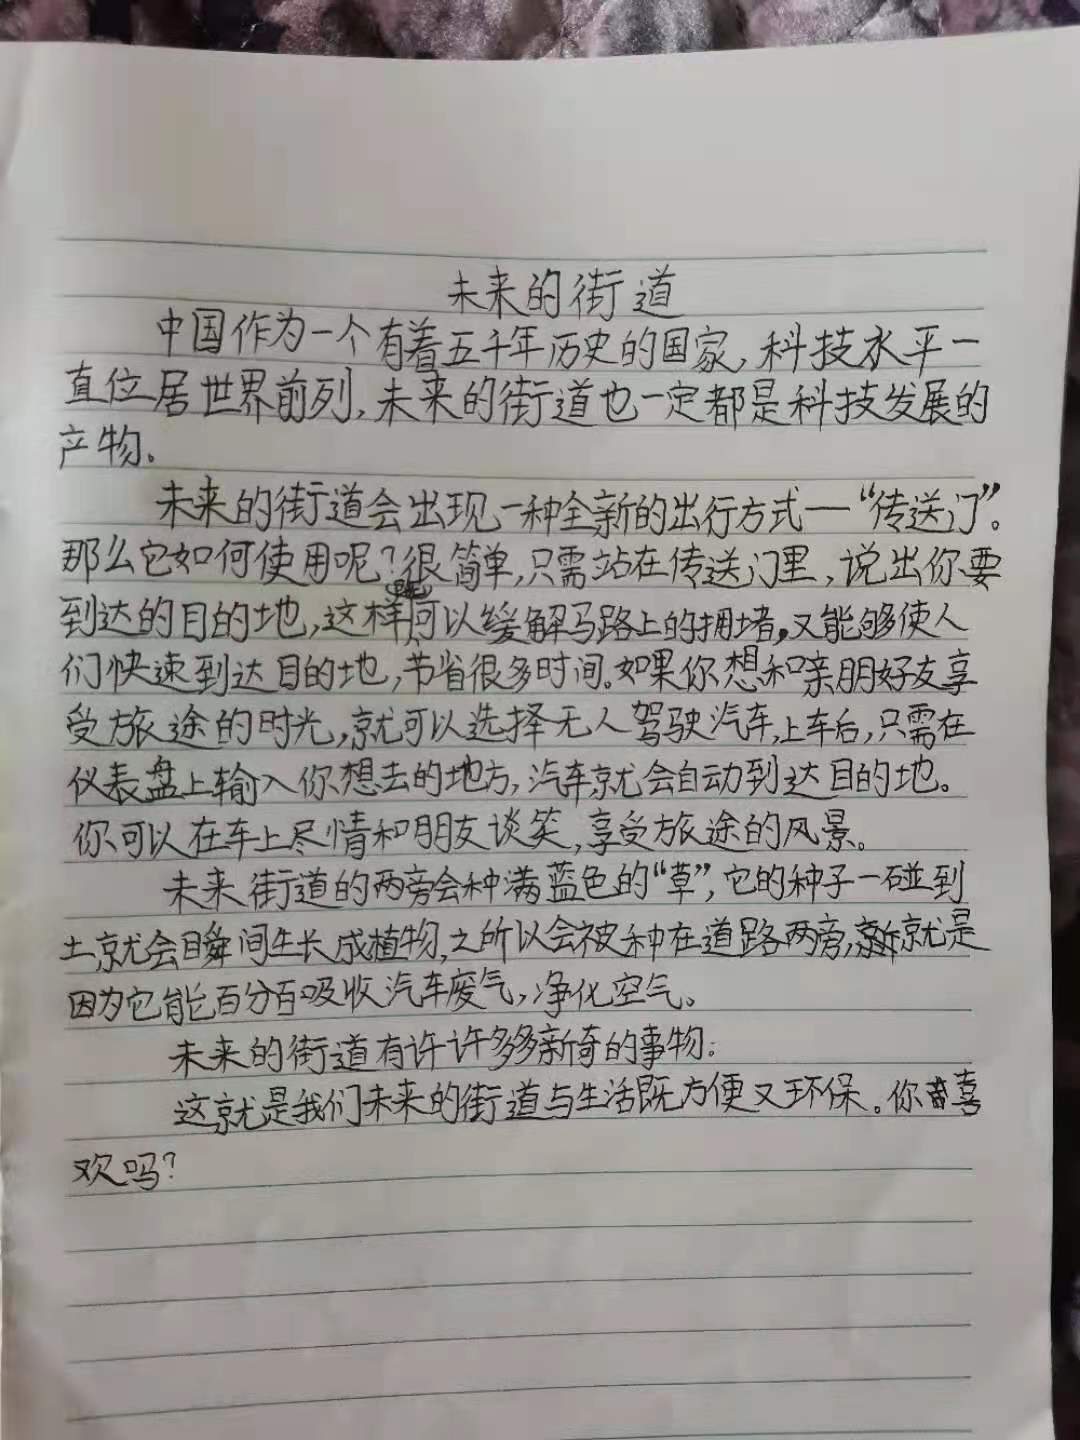 未来的街道
中国作为一个有着五千年历史的国家,科技水平一
直位居世界前列,未来的街道也一定都是科技发展的
产物。
未来的街道会出现一种全新的出行方式—“传送门”。
那么它如何使用呢?很简单,只需站在传送门里,说出你要
到达的目的地,这样可以缓解马路上的拥堵,又能够使人
们快速到达目的地,节省很多时间。如果你想和亲朋好友享
受旅途的时光,就可以选择无人驾驶汽车,上车后,只需在
仪表盘上输入你想去的地方,汽车就会自动到达目的地。
你可以在车上尽情和朋友谈笑,享受旅途的风景。
未来街道的两旁会种满蓝色的“草”,它的种子一碰到
土,就会瞬间生长成植物,之所以会被种在道路两旁,就是
因为它能百分百吸收汽车废气,净化空气。
未来的街道有许许多多新奇的事物;
这就是我们未来的街道与生活既方便又环保。你喜
欢吗?